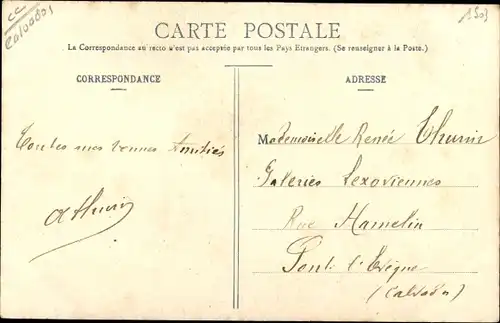 CC
Calvados
1503
CARTE POSTALE
La Correspondance au recto n'est pas acceptée par tous les Pays Etrangers. (Se renseigner à la Poste.)
CORRESPONDANCE
Toutes mes bonnes Amitiés
ADRESSE
Mademoiselle Renée
Galeries Lexoviennes
Rue Hamelin
Pont l'Evêque
(Calvados)